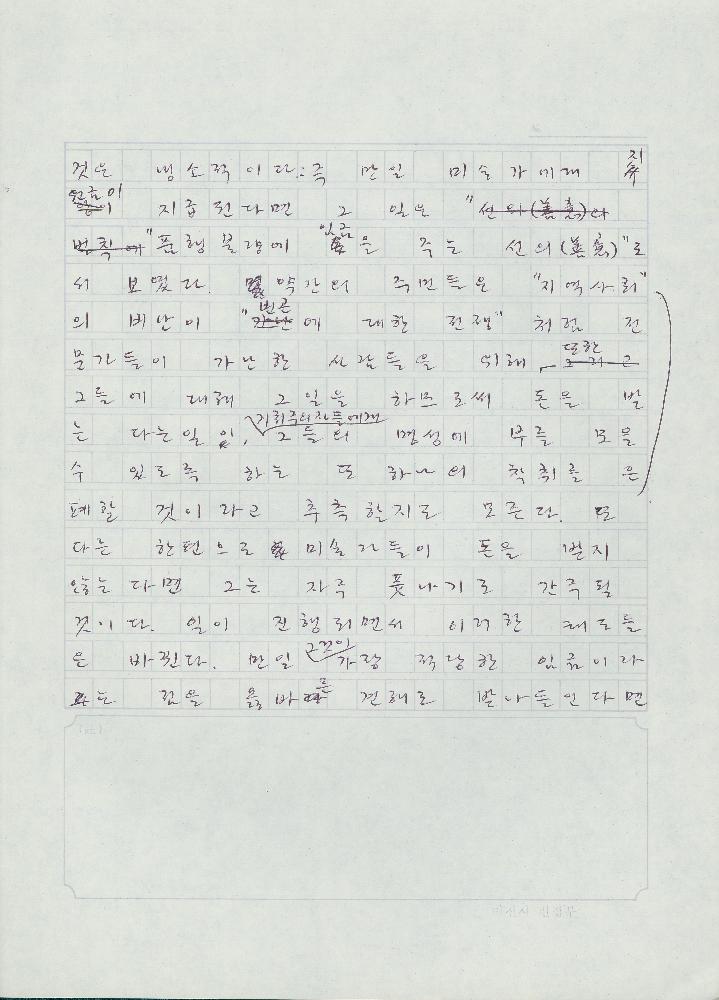 것은 냉소적이다: 즉 만일 미술가에게
지급된다면 그 일은 "선의(善意)라
법칙에" "품행불량에 임금을 주는 선의(善意)"로
서 보였다. 약간의 주민들은 "지역사회"
의 비난이 "빈곤에 대한 전쟁" 처럼 전
문가들이 가난한 사람들을 위해, 또한
그들에 대해 그 일을 하므로써 돈을 벌
는 다는 일임, 기회주의자들에게 그들의 명성에 부를 모을
수 있도록 하는 또 하나의 착취를 은
폐할 것이라고 추측할지도 모른다. 또
다는 한편으로 미술가들이 돈을 받지
않는다면 그는 자주 풋나기로 간주될
것이다. 일이 진행되면서 이러한 태도들
은 바뀐다. 만일 그것이 가장 적당한 임금이라
는 것을 올바른 견해로 받아들인다면
마산시 민컴부